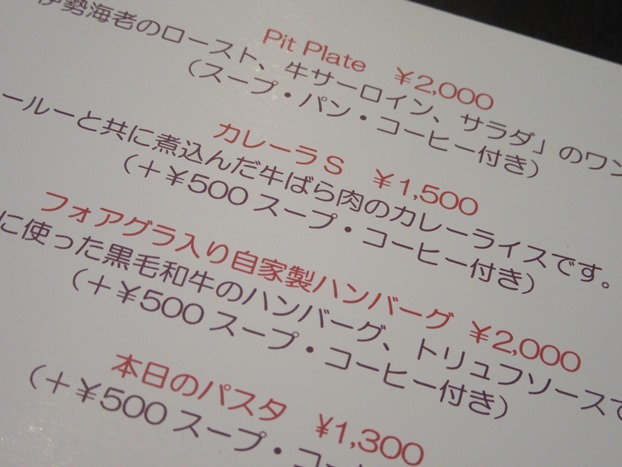 Pit Plate ¥2,000
伊勢海老のロースト、牛サーロイン、サラダ」のワン
（スープ・パン・コーヒー付き）
カレーラS ¥1,500
ールーと共に煮込んだ牛ばら肉のカレーライスです。
（＋¥500 スープ・コーヒー付き）
フォアグラ入り自家製ハンバーグ ¥2,000
に使った黒毛和牛のハンバーグ、トリュフソースで
（＋¥500 スープ・コーヒー付き）
本日のパスタ ¥1,300
（＋¥500 スープ・コ